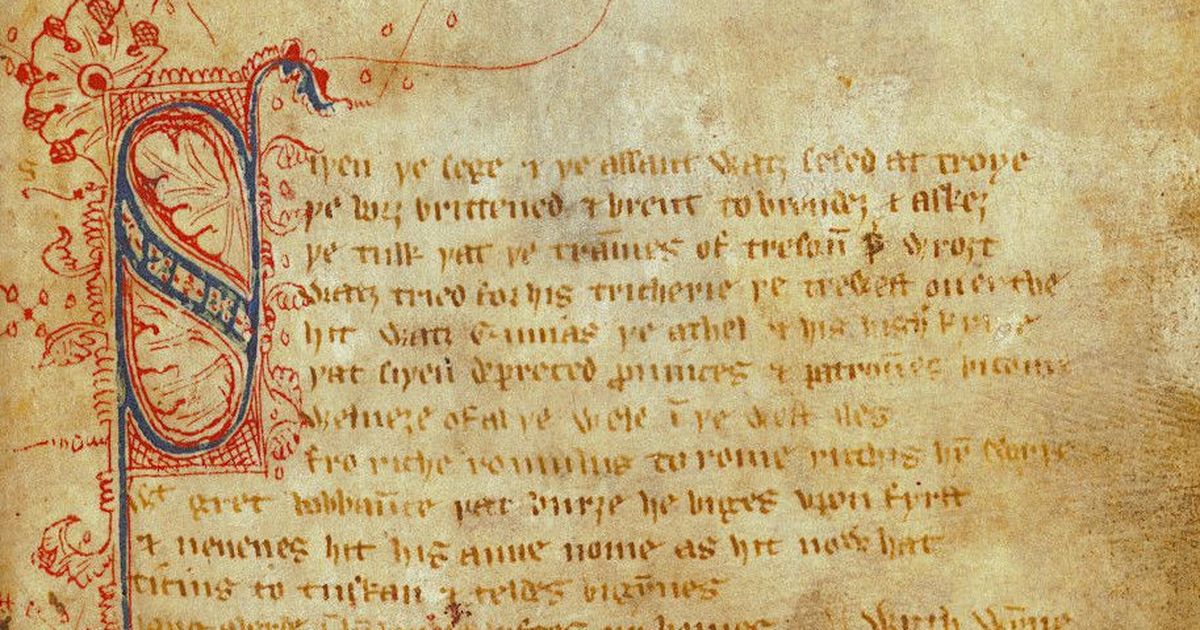 Siþen þe sege & þe assaut watz sesed at troye
þe borȝ brittened & brent to brondeȝ & askeȝ
þe tulk þat þe trāmes of tresoū þ̉ wroȝt
watz tried for his tricherie þe trewest on erthe
hit watz Ennias þe athel & his highe kynde
þat siþen depreced prouinces & patroūes bicome
welneȝe of al þe wele ī þe west iles
fro riche romulus to rome ricchis hȳ swyþe
wᵗ gret bobbaūce þat burȝe he biges vpon fyrst
& neuenes hit his aune nome as hit now hat
ticius to tuskan & teldes bigȳnes
lyftes vp homes wyth wȳne